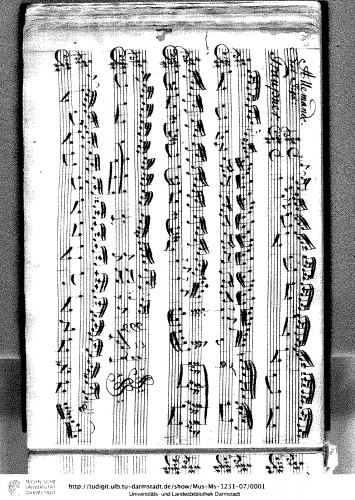 Allemande
TECHNISCHE
UNIVERSITÄT
DARMSTADT
http://tudigit.ulb.tu-darmstadt.de/show/Mus-Ms-1231-07/0001
Universitäts- und Landesbibliothek Darmstadt